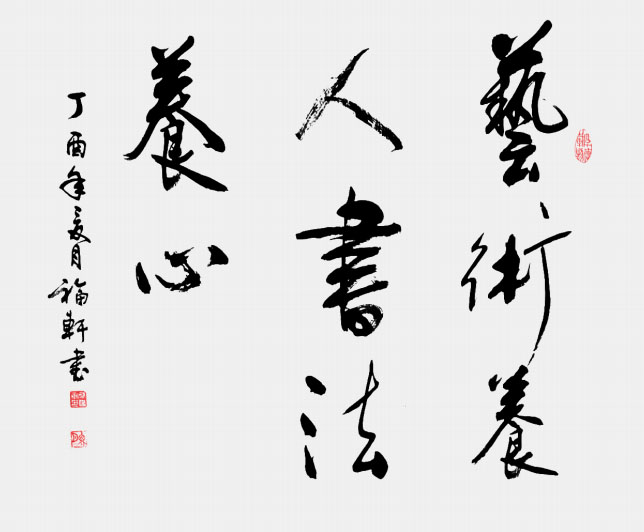 藝術養
人書法
養心
丁酉年夏月福軒書